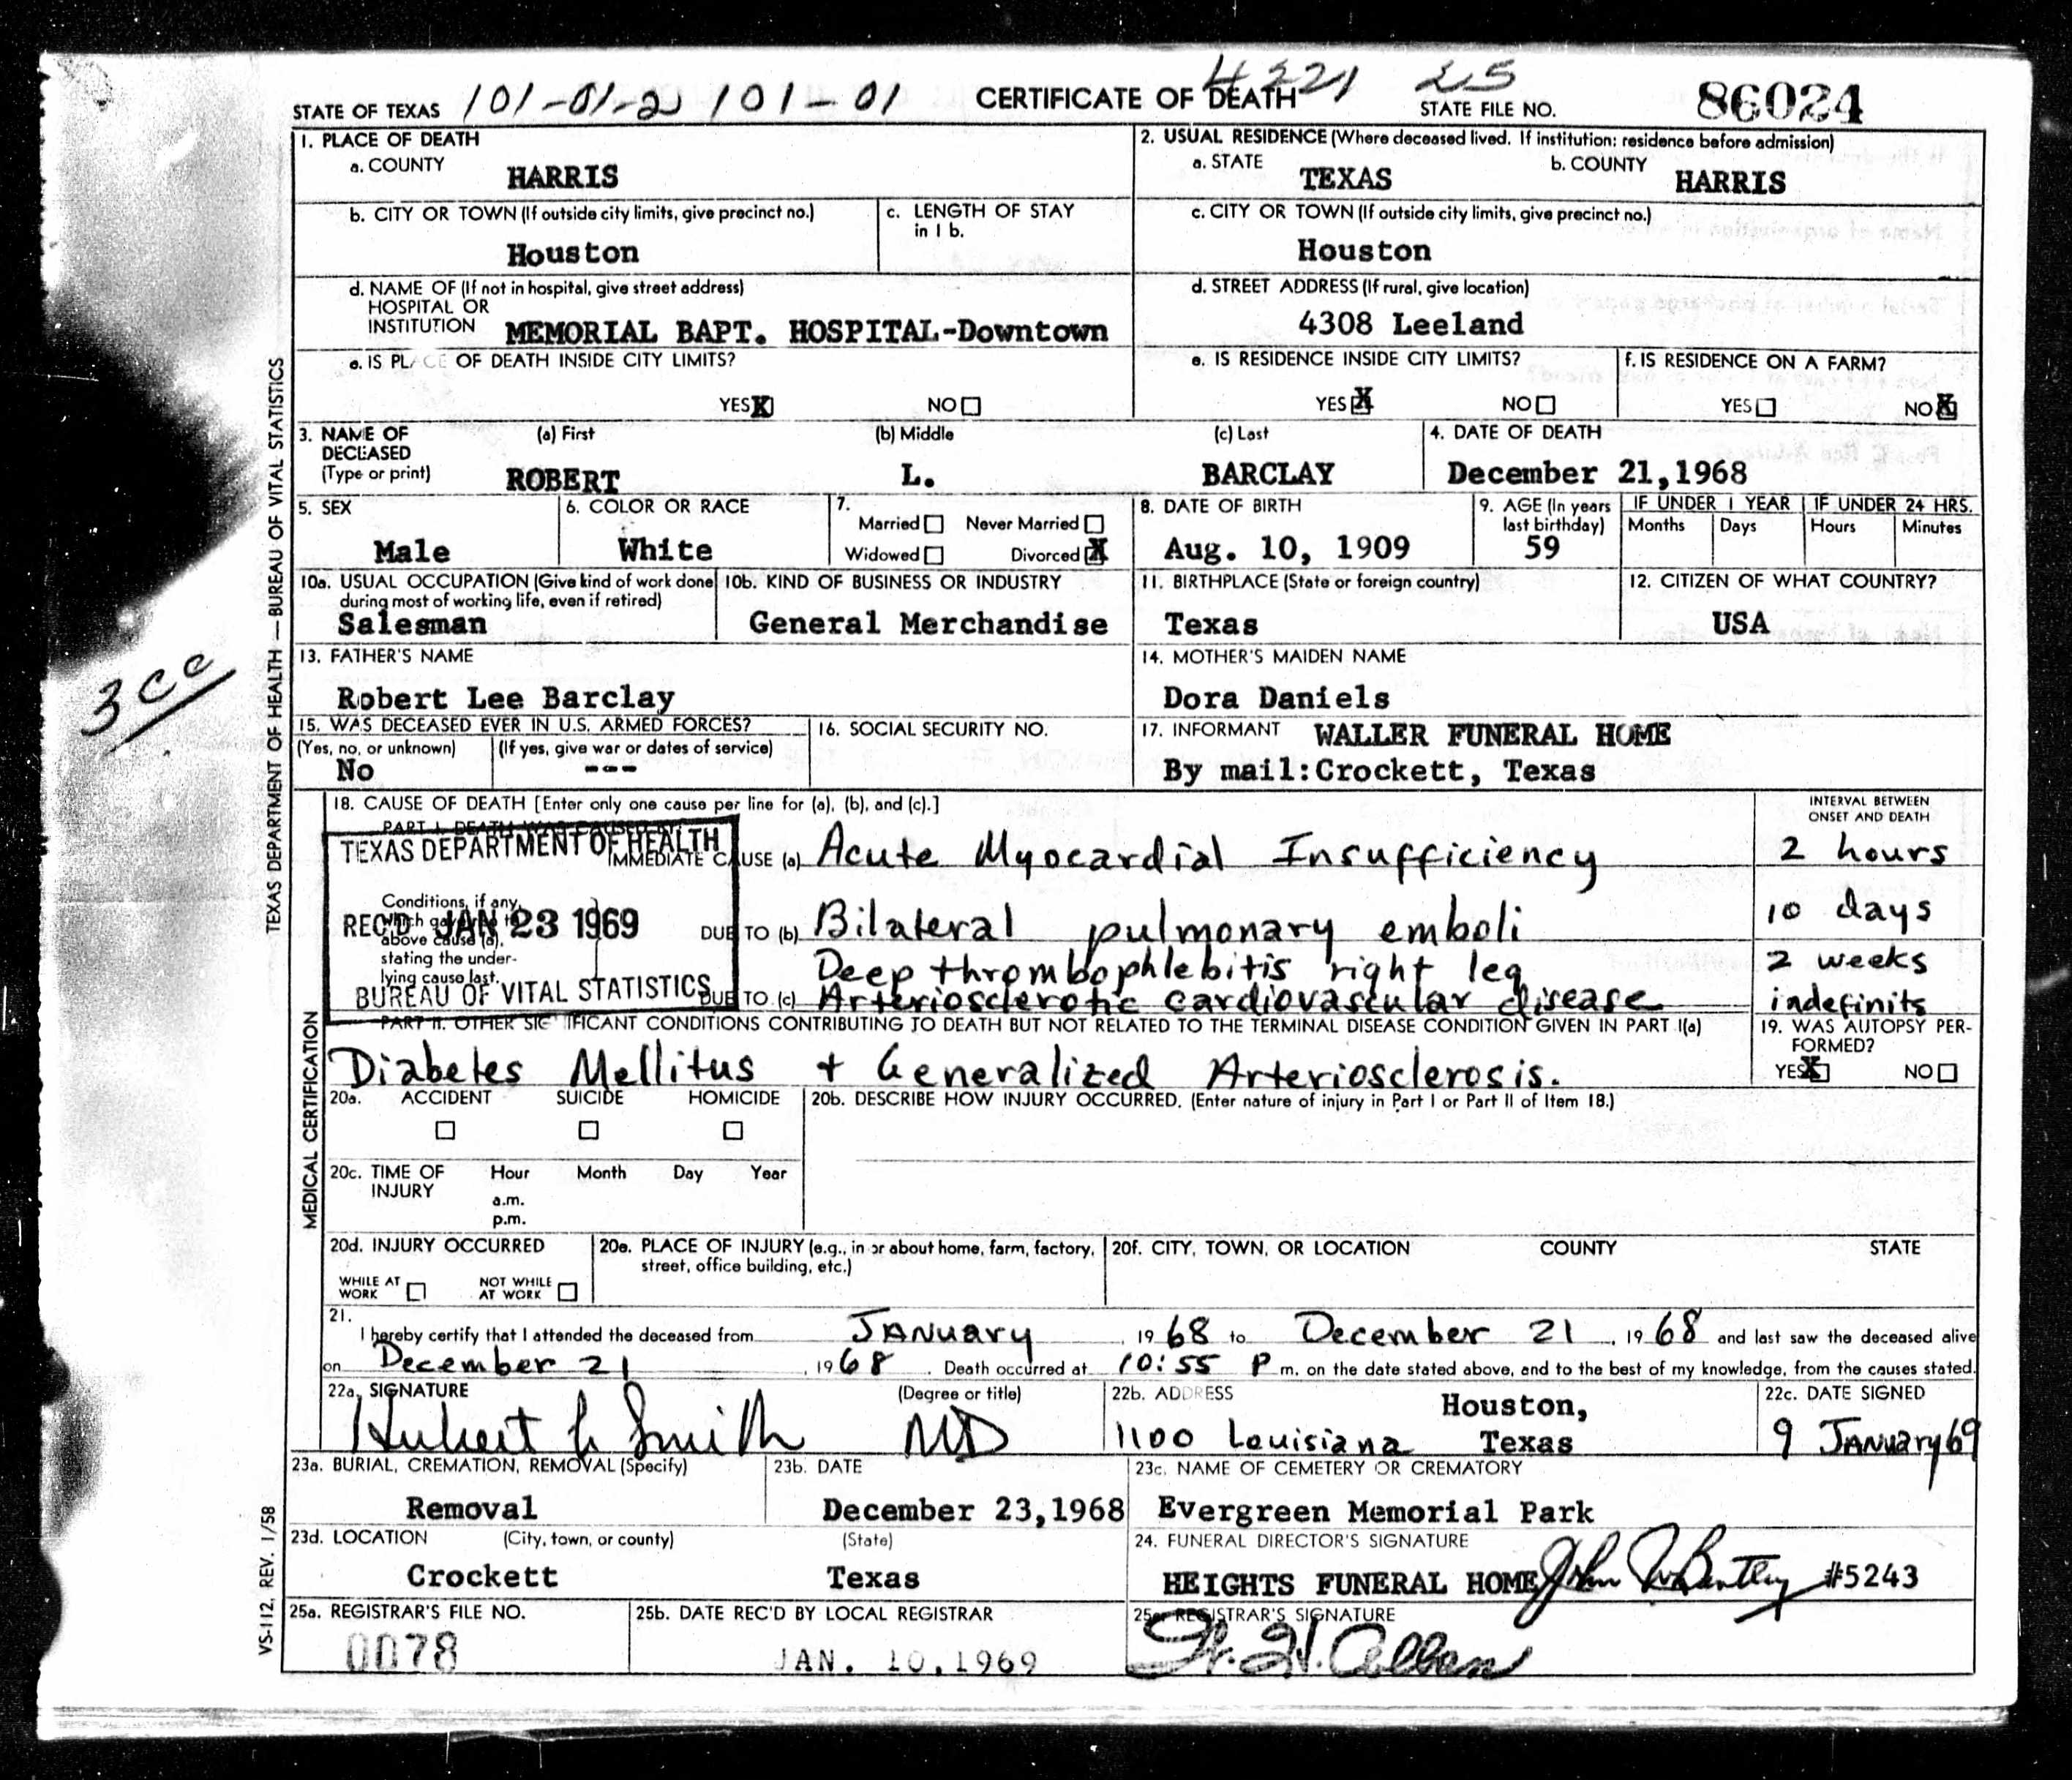 STATE OF TEXAS 101-01-2 101-01 CERTIFICATE OF DEATH 4221 25 STATE FILE NO. 86024
1. PLACE OF DEATH
a. COUNTY HARRIS
2. USUAL RESIDENCE (Where deceased lived. If institution: residence before admission)
a. STATE TEXAS b. COUNTY HARRIS
b. CITY OR TOWN (If outside city limits, give precinct no.) Houston
c. LENGTH OF STAY in 1 b.
c. CITY OR TOWN (If outside city limits, give precinct no.) Houston
d. NAME OF (If not in hospital, give street address)
HOSPITAL OR
INSTITUTION MEMORIAL BAPT. HOSPITAL-Downtown
d. STREET ADDRESS (If rural, give location)
4308 Leeland
e. IS PLACE OF DEATH INSIDE CITY LIMITS?
YES X NO
e. IS RESIDENCE INSIDE CITY LIMITS?
YES X NO
f. IS RESIDENCE ON A FARM?
YES NO X
3. NAME OF DECEASED (Type or print)
(a) First (b) Middle (c) Last
ROBERT L. BARCLAY
4. DATE OF DEATH
December 21,1968
5. SEX
Male
6. COLOR OR RACE
White
7. Married Never Married
Widowed Divorced X
8. DATE OF BIRTH
Aug. 10, 1909
9. AGE (In years last birthday)
59
IF UNDER 1 YEAR IF UNDER 24 HRS.
Months Days Hours Minutes
10a. USUAL OCCUPATION (Give kind of work done during most of working life, even if retired)
Salesman
10b. KIND OF BUSINESS OR INDUSTRY
General Merchandise
11. BIRTHPLACE (State or foreign country)
Texas
12. CITIZEN OF WHAT COUNTRY?
USA
13. FATHER'S NAME
Robert Lee Barclay
14. MOTHER'S MAIDEN NAME
Dora Daniels
15. WAS DECEASED EVER IN U.S. ARMED FORCES?
(Yes, no, or unknown) (If yes, give war or dates of service)
No ---
16. SOCIAL SECURITY NO.
17. INFORMANT WALLER FUNERAL HOME
By mail:Crockett, Texas
3cc
TEXAS DEPARTMENT OF HEALTH — BUREAU OF VITAL STATISTICS
MEDICAL CERTIFICATION
18. CAUSE OF DEATH [Enter only one cause per line for (a), (b), and (c).]
INTERVAL BETWEEN ONSET AND DEATH
PART I. DEATH WAS CAUSED BY:
IMMEDIATE CAUSE (a) Acute Myocardial Insufficiency 2 hours
TEXAS DEPARTMENT OF HEALTH
REC'D JAN 23 1969
BUREAU OF VITAL STATISTICS
Conditions, if any,
which gave rise to
above cause (a),
stating the under-
lying cause last.
DUE TO (b) Bilateral pulmonary emboli 10 days
Deep thrombophlebitis right leg 2 weeks
DUE TO (c) Arteriosclerotic cardiovascular disease indefinits
PART II. OTHER SIGNIFICANT CONDITIONS CONTRIBUTING TO DEATH BUT NOT RELATED TO THE TERMINAL DISEASE CONDITION GIVEN IN PART I(a)
Diabetes Mellitus + Generalized Arteriosclerosis.
19. WAS AUTOPSY PER-
FORMED?
YES X NO
20a. ACCIDENT SUICIDE HOMICIDE
20b. DESCRIBE HOW INJURY OCCURRED. (Enter nature of injury in Part I or Part II of Item 18.)
20c. TIME OF INJURY Hour Month Day Year
a.m.
p.m.
20d. INJURY OCCURRED
WHILE AT WORK NOT WHILE AT WORK
20e. PLACE OF INJURY (e.g., in or about home, farm, factory, street, office building, etc.)
20f. CITY, TOWN, OR LOCATION COUNTY STATE
21.
I hereby certify that I attended the deceased from January , 19 68 to December 21 , 19 68 and last saw the deceased alive
on December 21 , 19 68 . Death occurred at 10:55 P m. on the date stated above, and to the best of my knowledge, from the causes stated.
22a. SIGNATURE (Degree or title)
Hubert L Smith MD
22b. ADDRESS
1100 Louisiana Houston, Texas
22c. DATE SIGNED
9 January 69
23a. BURIAL, CREMATION, REMOVAL (Specify)
Removal
23b. DATE
December 23,1968
23c. NAME OF CEMETERY OR CREMATORY
Evergreen Memorial Park
23d. LOCATION (City, town, or county) (State)
Crockett Texas
24. FUNERAL DIRECTOR'S SIGNATURE
HEIGHTS FUNERAL HOME John W Bentley #5243
25a. REGISTRAR'S FILE NO.
0078
25b. DATE REC'D BY LOCAL REGISTRAR
JAN. 10,1969
25c. REGISTRAR'S SIGNATURE
VS-112, REV. 1/58